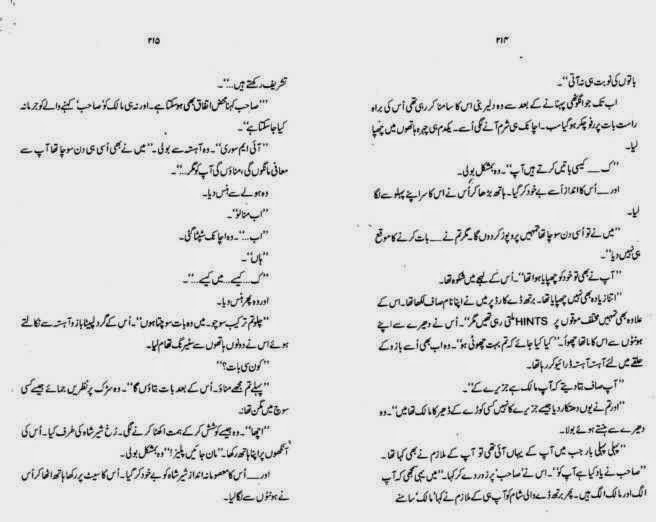 ۲۱۴
باتوں کی نوبت ہی نہ آتی"۔
اب تک جو انگوٹھی پہنانے کے بعد سے وہ دلیر بنی اس کا سامنا کر رہی تھی اُس کی براہ
راست بات پر رفو چکر ہو گیا سب۔ اچانک ہی شرم آنے لگی اُسے۔ یکدم ہی چہرہ ہاتھوں میں چھپا
لیا۔
"ک___ کیسی باتیں کرتے ہیں آپ"۔ وہ بمشکل بولی۔
اور___ اُس کا انداز اُسے بے خود کر گیا۔ ہاتھ بڑھا کر اُس نے اس کا سر اپنے پہلو سے لگا
لیا۔
"میں نے تو اُسی دن سوچا تھا تمہیں پروپوز کر دوں گا۔ مگر تم نے___ بات کرنے کا موقع
ہی نہیں دیا"۔
"آپ نے بھی تو خود کو چھپایا ہوا تھا"۔ اُس کے لہجے میں شکوہ تھا۔
"اتنا زیادہ بھی نہیں چھپایا تھا۔ برتھ ڈے کارڈ پر میں نے اپنا نام صاف لکھا تھا۔ اس کے
علاوہ بھی تمہیں مختلف موقوں پر HINTS ملتی رہی تھیں مگر"۔ اُس نے دھیرے سے اپنے
ہونٹوں سے اس کا ماتھا چھوا۔ "کیا کیا جائے کہ تم بہت چھوٹی ہو"۔ وہ اب بھی اُسے بازو کے
حلقے میں لئے آہستہ آہستہ ڈرائیو کر رہا تھا۔
"آپ صاف بتا دیتے کہ آپ مالک ہے جزیرے کے"۔
"اور تم نے یوں دھتکار دیا جیسے جزیرے کا نہیں کسی کوڑے کے ڈھیر کا مالک تھا میں"۔ وہ
دھیرے سے ہنستے ہوئے بولا۔
"پہلی پہلی بار جب میں آپ کے یہاں آئی تھی تو آپ کے ملازم نے بھی کہا تھا۔
"صاحب نے یاد کیا ہے آپ کو"۔ اس نے 'صاحب' پر زور دے کر کہا۔ "میں یہی سمجھی کہ آپ
الگ اور مالک الگ ہیں۔ پھر برتھ ڈے والی شام کو آپ ہی کے ملازم نے کہا 'مالک' سامنے
۲۱۵
تشریف رکھتے ہیں..."۔
"'صاحب' کہنا محض اتفاق بھی ہو سکتا ہے۔ اور نہ ہی مالک کو 'صاحب' کہنے والے کو جرمانہ
کیا جا سکتا ہے"۔
"آئی ایم سوری"۔ وہ آہستہ سے بولی۔ "میں نے بھی اُسی ہی دن سوچا تھا آپ سے
معافی مانگوں گی، مناؤں گی آپ کو مگر..."۔
وہ ہولے سے ہنس دیا۔
"اب منا لو"۔
"اب..."۔ وہ اچانک سٹپٹا گئی۔
"ہاں"۔
"ک___ کیسے... میں کیسے..."۔
اور وہ پھر ہنس دیا۔
"چلو تم ترکیب سوچو۔ میں وہ بات سوچتا ہوں"۔ اُس کے گرد لپیٹا بازو آہستہ سے نکالتے
ہوئے اس نے دونوں ہاتھوں سے سٹیرنگ تھام لیا۔
"کون سی بات؟"
"پہلے تم مجھے مناؤ۔ اُس کے بعد بات بتاؤں گا"۔ وہ سڑک پر نظریں جمائے جیسے کسی
سوچ میں مگن تھا۔
"اچھا"۔ وہ جیسے کوشش کر کے ہمت اکٹھا کرنے لگی۔ رُخ شیر شاہ کی طرف کیا۔ اُس کی
آنکھوں پر اپنا ہاتھ رکھا۔ "مان جائیں پلیز!" وہ بمشکل بولی۔
اور___ اُس کا معصومانہ انداز شیر شاہ کو بے خود کر گیا۔ اُس کا سیٹ پر رکھا ہاتھ اٹھا کر اُس
نے ہونٹوں سے لگا لیا۔